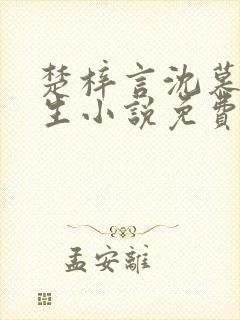 楚梓言沈慕
生小說免費
孟安離